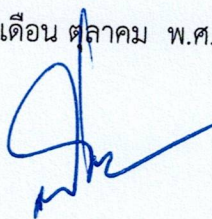 เดือน ตุลาคม พ.ศ.